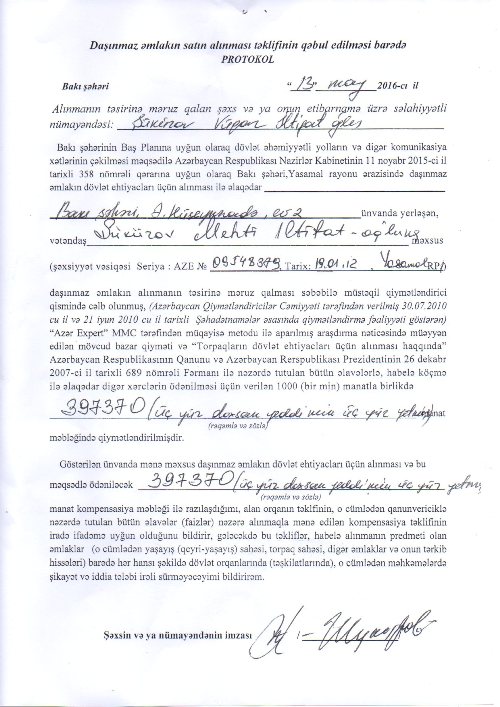 Daşınmaz əmlakın satın alınması təklifinin qəbul edilməsi barədə
PROTOKOL
Bakı şəhəri “13” may 2016-cı il
Alınmanın təsirinə məruz qalan şəxs və ya onun etibarnamə üzrə səlahiyyətli
nümayəndəsi: Şükürov Vüqar İltifat oğlu
Bakı şəhərinin Baş Planına uyğun olaraq dövlət əhəmiyyətli yolların və digər komunikasiya
xətlərinin çəkilməsi məqsədilə Azərbaycan Respublikası Nazirlər Kabinetinin 11 noyabr 2015-ci il
tarixli 358 nömrəli qərarına uyğun olaraq Bakı şəhəri,Yasamal rayonu ərazisində daşınmaz
əmlakın dövlət ehtiyacları üçün alınması ilə əlaqədar
Bakı şəhəri, Ə. Hüseynzadə, ev 2 ünvanda yerləşən,
vətəndaş Şükürov Mehti İltifat-oğluna məxsus
(şəxsiyyət vəsiqəsi Seriya : AZE № 09548379, Tarix: 19.01.12, Yasamal RPİ)
daşınmaz əmlakın alınmanın təsirinə məruz qalması səbəbilə müstəqil qiymətləndirici
qismində cəlb olunmuş, (Azərbaycan Qiymətləndiricilər Cəmiyyəti tərəfindən verilmiş 30.07.2010
cu il və 21 iyun 2010 cu il tarixli Şəhadətnamələr əsasında qiymətləndirmə fəaliyyəti göstərən)
“Azər Expert” MMC tərəfindən müqayisə metodu ilə aparılmış araşdırma nəticəsində müəyyən
edilən mövcud bazar qiyməti və “Torpaqların dövlət ehtiyacları üçün alınması haqqında”
Azərbaycan Respublikasının Qanunu və Azərbaycan Rerspublikası Prezidentinin 26 dekabr
2007-ci il tarixli 689 nömrəli Fərmanı ilə nəzərdə tutulan bütün əlavələrlə, habelə köçmə
ilə əlaqədar digər xərclərin ödənilməsi üçün verilən 1000 (bir min) manatla birlikdə
397370 /üç yüz doxsan yeddi min üç yüz yetmiş/ manat
(rəqəmlə və sözlə)
məbləğində qiymətləndirilmişdir.
Göstərilən ünvanda mənə məxsus daşınmaz əmlakın dövlət ehtiyacları üçün alınması və bu
məqsədlə ödəniləcək 397370 /üç yüz doxsan yeddi min üç yüz yetmiş/
(rəqəmlə və sözlə)
manat kompensasiya məbləği ilə razılaşdığımı, alan orqanın təklfinin, o cümlədən qanunvericiklə
nəzərdə tutulan bütün əlavələr (faizlər) nəzərə alınmaqla mənə edilən kompensasiya təklifinin
iradə ifadəmə uyğun olduğunu bildirir, gələcəkdə bu təkliflər, habelə alınmanın predmeti olan
əmlaklar (o cümlədən yaşayış (qeyri-yaşayış) sahəsi, torpaq sahəsi, digər əmlaklar və onun tərkib
hissələri) barədə hər hansı şəkildə dövlət orqanlarında (təşkilatlarında), o cümlədən məhkəmələrdə
şikayət və iddia tələbi irəli sürməyəcəyimi bildirirəm.
Şəxsin və ya nümayəndənin imzası